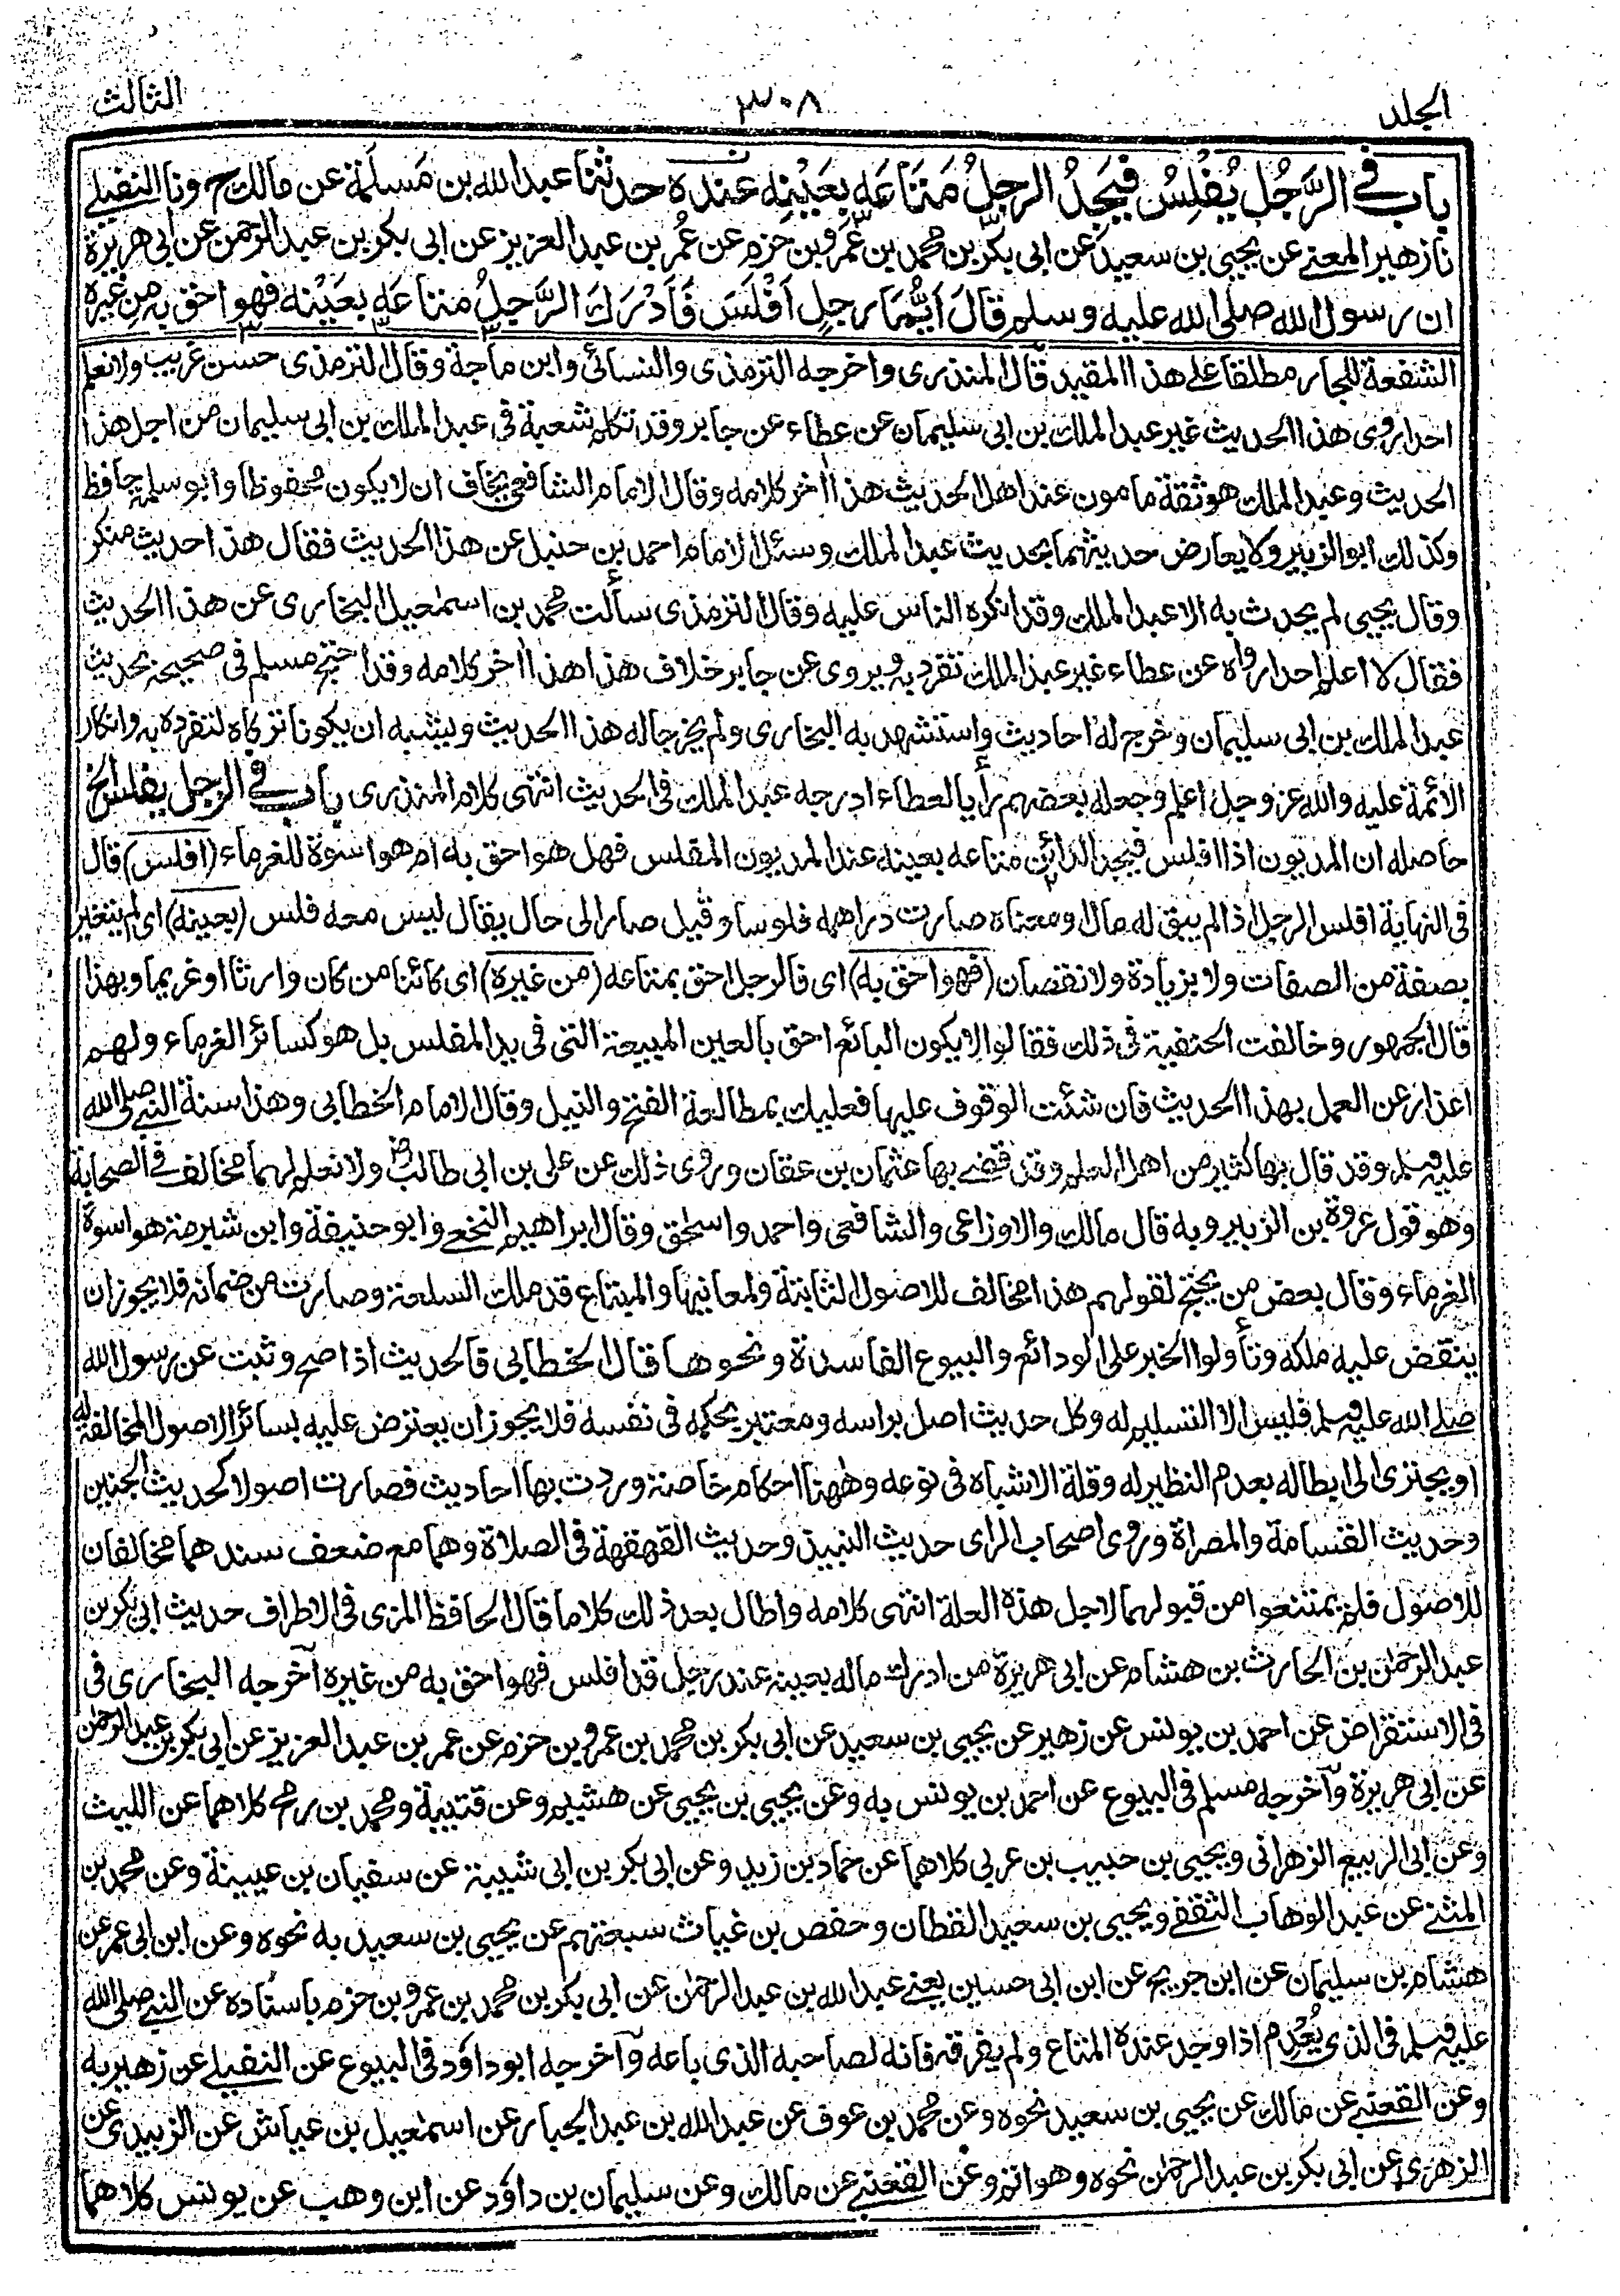 الجلد ٣٠٨ الثالث
باب في الرَّجُلِ يُفْلِسُ فيَجِدُ الرجلُ مَتَاعَه بعَيْنِه عنده حدثنا عبد الله بن مَسلَمَة عن مالك ح ونا النفيلي
نا زهير المعنى عن يحيى بن سعيد عن ابى بكر بن محمد بن عَمرو بن حزم عن عُمر بن عبد العزيز عن ابى بكر بن عبد الرحمن عن ابى هريرة
ان رسول الله صلى الله عليه وسلم قالَ اَيُّمَا رجلٍ اَفْلَسَ فَاَدْرَكَ الرَّجلُ متاعَه بعَيْنه فهو احق به من غيره
الشفعة للجار مطلقا على هذا المقيد قال المنذرى واخرجه الترمذى والنسائى وابن ماجة وقال الترمذى حسن غريب ولا نعلم
احدا روى هذا الحديث غير عبد الملك بن ابى سليمان عن عطاء عن جابر وقد تكلم شعبة فى عبد الملك بن ابى سليمان من اجل هذا
الحديث وعبد الملك هو ثقة مامون عند اهل الحديث هذا اٰخر كلامه وقال الامام الشافعى يخاف ان لا يكون محفوظا وابو سلمة حافظ
وكذلك ابو الزبير ولا يعارض حديثهما بحديث عبد الملك وسئل الامام احمد بن حنبل عن هذا الحديث فقال هذا حديث منكر
وقال يحيى لم يحدث به الا عبد الملك وقد انكره الناس عليه وقال الترمذى سألت محمد بن اسمٰعيل البخارى عن هذا الحديث
فقال لا اعلم احدا رواه عن عطاء غير عبد الملك تفرد به ويروى عن جابر خلاف هذا هذا اٰخر كلامه وقد احتج مسلم فى صحيحه بحديث
عبد الملك بن ابى سليمان وخرج له احاديث واستشهد به البخارى ولم يخرجا له هذا الحديث ويشبه ان يكونا تركاه لتفرده به وانكار
الائمة عليه والله عز وجل اعلم وجعله بعضهم رأيا لعطاء ادرجه عبد الملك فى الحديث انتهى كلام المنذرى باب فى الرجل يفلس الخ
حاصله ان المديون اذا افلس فيجد الدائن متاعه بعينه عند المديون المفلس فهل هو احق به ام هو اسوة للغرماء (افلس) قال
فى النهاية افلس الرجل اذا لم يبق له مال او معناه صارت دراهمه فلوسا وقيل صار الى حال يقال ليس معه فلس (بعينه) اى لم يتغير
بصفة من الصفات ولا بزيادة ولا نقصان (فهو احق به) اى فالرجل احق بمتاعه (من غيره) اى كائنا من كان وارثا او غريما وبهذا
قال الجمهور وخالفت الحنفية فى ذلك فقالوا لا يكون البائع احق بالعين المبيعة التى فى يد المفلس بل هو كسائر الغرماء ولهم
اعذار عن العمل بهذا الحديث فان شئت الوقوف عليها فعليك بمطالعة الفتح والنيل وقال الامام الخطابى وهذا سنة النبي صلى الله
عليه وسلم وقد قال بها كثير من اهل العلم وقد قضى بها عثمان بن عفان وروى ذلك عن على بن ابى طالب رض ولا نعلم لهما مخالف فى الصحابة
وهو قول عروة بن الزبير وبه قال مالك والاوزاعى والشافعى واحمد واسحٰق وقال ابراهيم النخعى وابو حنيفة وابن شبرمة هو اسوة
الغرماء وقال بعض من يحتج لقولهم هذا مخالف للاصول الثابتة ولمعانيها والمبتاع قد ملك السلعة وصارت من ضمانه فلا يجوز ان
ينقض عليه ملكه وتأولوا الخبر على الودائع والبيوع الفاسدة ونحوها قال الخطابى فالحديث اذا صح وثبت عن رسول الله
صلى الله عليه وسلم فليس الا التسليم له وكل حديث اصل براسه ومعتبر بحكمه فى نفسه فلا يجوز ان يعترض عليه بسائر الاصول المخالفة له
او يجترى الى ابطاله بعدم النظير له وقلة الاشباه فى نوعه وهٰهنا احكام خاصة وردت بها احاديث فصارت اصولا كحديث الجنين
وحديث القسامة والمصراة وروى اصحاب الراى حديث النبيذ وحديث القهقهة فى الصلاة وهما مع ضعف سندهما مخالفان
للاصول فلم يمتنعوا من قبولهما لاجل هذه العلة انتهى كلامه واطال بعد ذلك كلاما قال الحافظ المزى فى الاطراف حديث ابى بكر بن
عبد الرحمٰن بن الحارث بن هشام عن ابى هريرة من ادرك ماله بعينه عند رجل قد افلس فهو احق به من غيره اخرجه البخارى فى
فى الاستقراض عن احمد بن يونس عن زهير عن يحيى بن سعيد عن ابى بكر بن محمد بن عمرو بن حزم عن عمر بن عبد العزيز عن ابى بكر بن عبد الرحمٰن
عن ابى هريرة واخرجه مسلم فى البيوع عن احمد بن يونس به وعن يحيى بن يحيى عن هشيم وعن قتيبة ومحمد بن رمح كلاهما عن الليث
وعن ابى الربيع الزهرانى ويحيى بن حبيب بن عربى كلاهما عن حماد بن زيد وعن ابى بكر بن ابى شيبة عن سفيان بن عيينة وعن محمد بن
المثنى عن عبد الوهاب الثقفى ويحيى بن سعيد القطان وحفص بن غياث سبعتهم عن يحيى بن سعيد به نحوه وعن ابن ابى عمر عن
هشام بن سليمان عن ابن جريج عن ابن ابى حسين يعنى عبد الله بن عبد الرحمٰن عن ابى بكر بن محمد بن عمرو بن حزم باسناده عن النبي صلى الله
عليه وسلم فى الذى يُعْدِم اذا وجد عنده المتاع ولم يفرقه فانه لصاحبه الذى باعه واخرجه ابو داؤد فى البيوع عن النفيلى عن زهير به
وعن القعنبى عن مالك عن يحيى بن سعيد نحوه وعن محمد بن عوف عن عبد الله بن عبد الجبار عن اسمٰعيل بن عياش عن الزبيدى عن
الزهرى عن ابى بكر بن عبد الرحمٰن نحوه وهو اتم وعن القعنبى عن مالك وعن سليمان بن داؤد عن ابن وهب عن يونس كلاهما